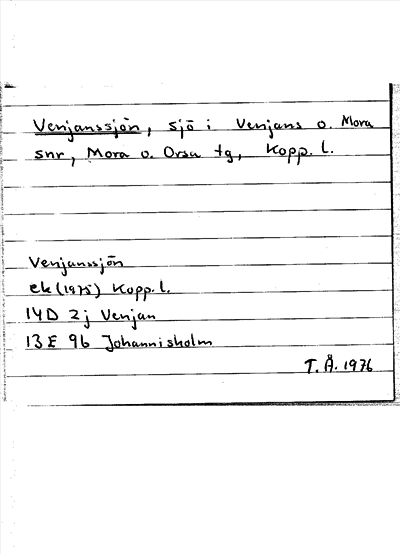 Venjanssjön, sjö i Venjans o. Mora
snr, Mora o. Orsa tg, Kopp. l.
Venjanssjön
ek (1975) Kopp. l.
14D 2j Venjan
13E 9b Johannisholm
T. Å. 1976